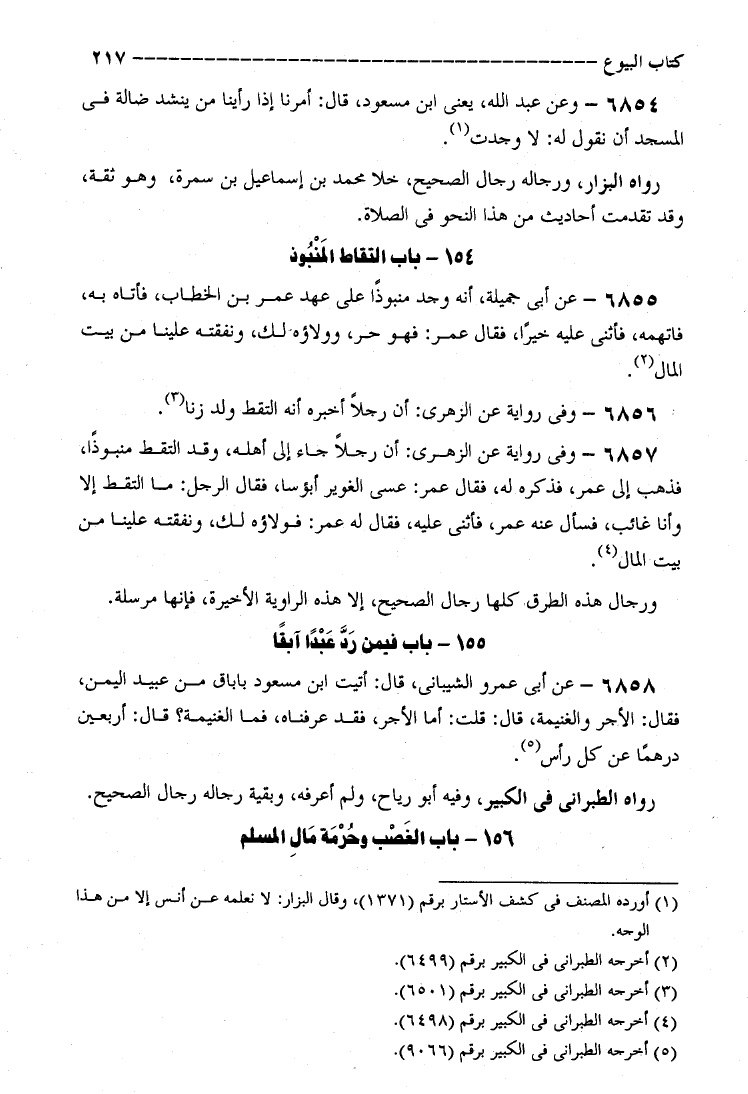 كتاب البيوع ---------------------------------------- ٢١٧
٦٨٥٤ – وعن عبد الله، يعنى ابن مسعود، قال: أمرنا إذا رأينا من ينشد ضالة فى
المسجد أن نقول له: لا وجدت(١).
رواه البزار، ورجاله رجال الصحيح، خلا محمد بن إسماعيل بن سمرة، وهو ثقة،
وقد تقدمت أحاديث من هذا النحو فى الصلاة.
١٥٤ – باب التقاط المَنْبُوذ
٦٨٥٥ – عن أبى جميلة، أنه وجد منبوذًا على عهد عمر بن الخطاب، فأتاه به،
فاتهمه، فأثنى عليه خيرًا، فقال عمر: فهو حر، وولاؤه لك، ونفقته علينا من بيت
المال(٢).
٦٨٥٦ – وفى رواية عن الزهرى: أن رجلاً أخبره أنه التقط ولد زنا(٣).
٦٨٥٧ – وفى رواية عن الزهرى: أن رجلاً جاء إلى أهله، وقد التقط منبوذًا،
فذهب إلى عمر، فذكره له، فقال عمر: عسى الغوير أبؤسا، فقال الرجل: ما التقط إلا
وأنا غائب، فسأل عنه عمر، فأثنى عليه، فقال له عمر: فولاؤه لك، ونفقته علينا من
بيت المال(٤).
ورجال هذه الطرق كلها رجال الصحيح، إلا هذه الراوية الأخيرة، فإنها مرسلة.
١٥٥ – باب فيمن رَدَّ عَبْدًا آبقًا
٦٨٥٨ – عن أبى عمرو الشيبانى، قال: أتيت ابن مسعود باباق من عبيد اليمن،
فقال: الأجر والغنيمة، قال: قلت: أما الأجر، فقد عرفناه، فما الغنيمة؟ قال: أربعين
درهمًا عن كل رأس(٥).
رواه الطبرانى فى الكبير، وفيه أبو رياح، ولم أعرفه، وبقية رجاله رجال الصحيح.
١٥٦ – باب الغَصْب وحُرْمَة مَالِ المسلم
(١) أورده المصنف فى كشف الأستار برقم (١٣٧١)، وقال البزار: لا نعلمه عن أنس إلا من هذا
الوجه.
(٢) أخرجه الطبرانى فى الكبير برقم (٦٤٩٩).
(٣) أخرجه الطبرانى فى الكبير برقم (٦٥٠١).
(٤) أخرجه الطبرانى فى الكبير برقم (٦٤٩٨).
(٥) أخرجه الطبرانى فى الكبير برقم (٩٠٦٦).